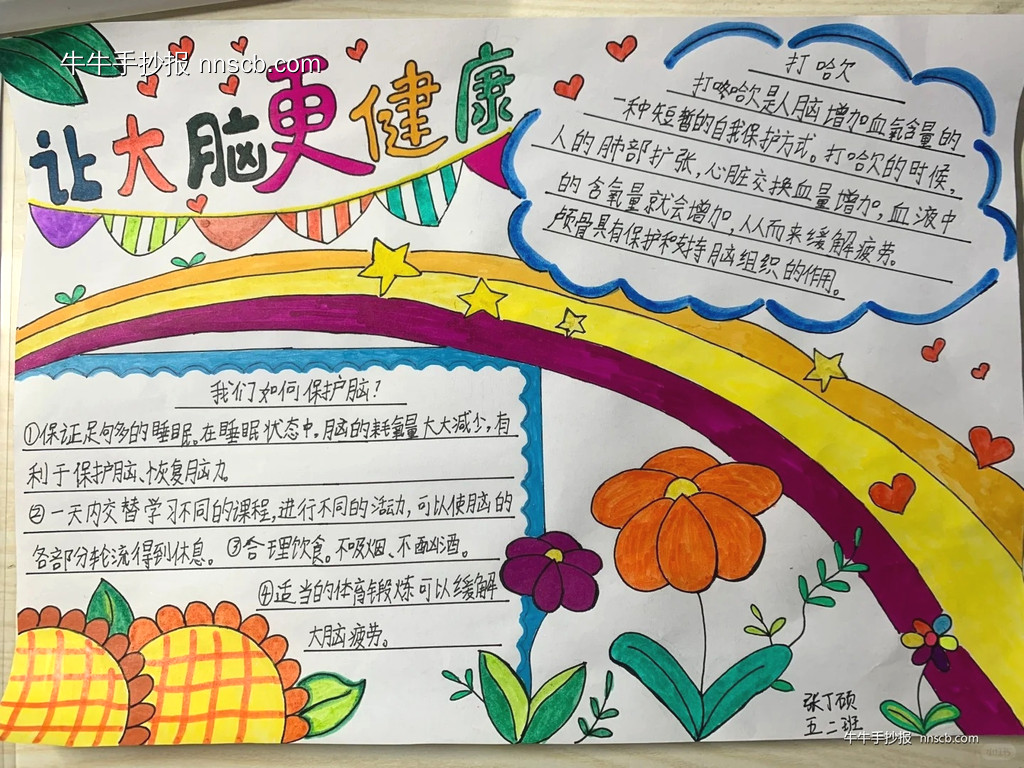 牛牛手抄报 nnscb.com
让大脑更健康
打哈欠
打哈欠是人脑增加血氧含量的
一种短暂的自我保护方式。打哈欠的时候,
人的肺部扩张,心脏交换血量增加,血液中
的含氧量就会增加,从而来缓解疲劳。
颅骨具有保护和支持脑组织的作用。
我们如何保护脑?
①保证足够多的睡眠。在睡眠状态中,脑的耗氧量大大减少,有
利于保护脑、恢复脑力。
②一天内交替学习不同的课程,进行不同的活动,可以使脑的
各部分轮流得到休息。③合理饮食。不吸烟、不酗酒。
④适当的体育锻炼可以缓解
大脑疲劳。
张丁硕
五二班
牛牛手抄报 nnscb.com